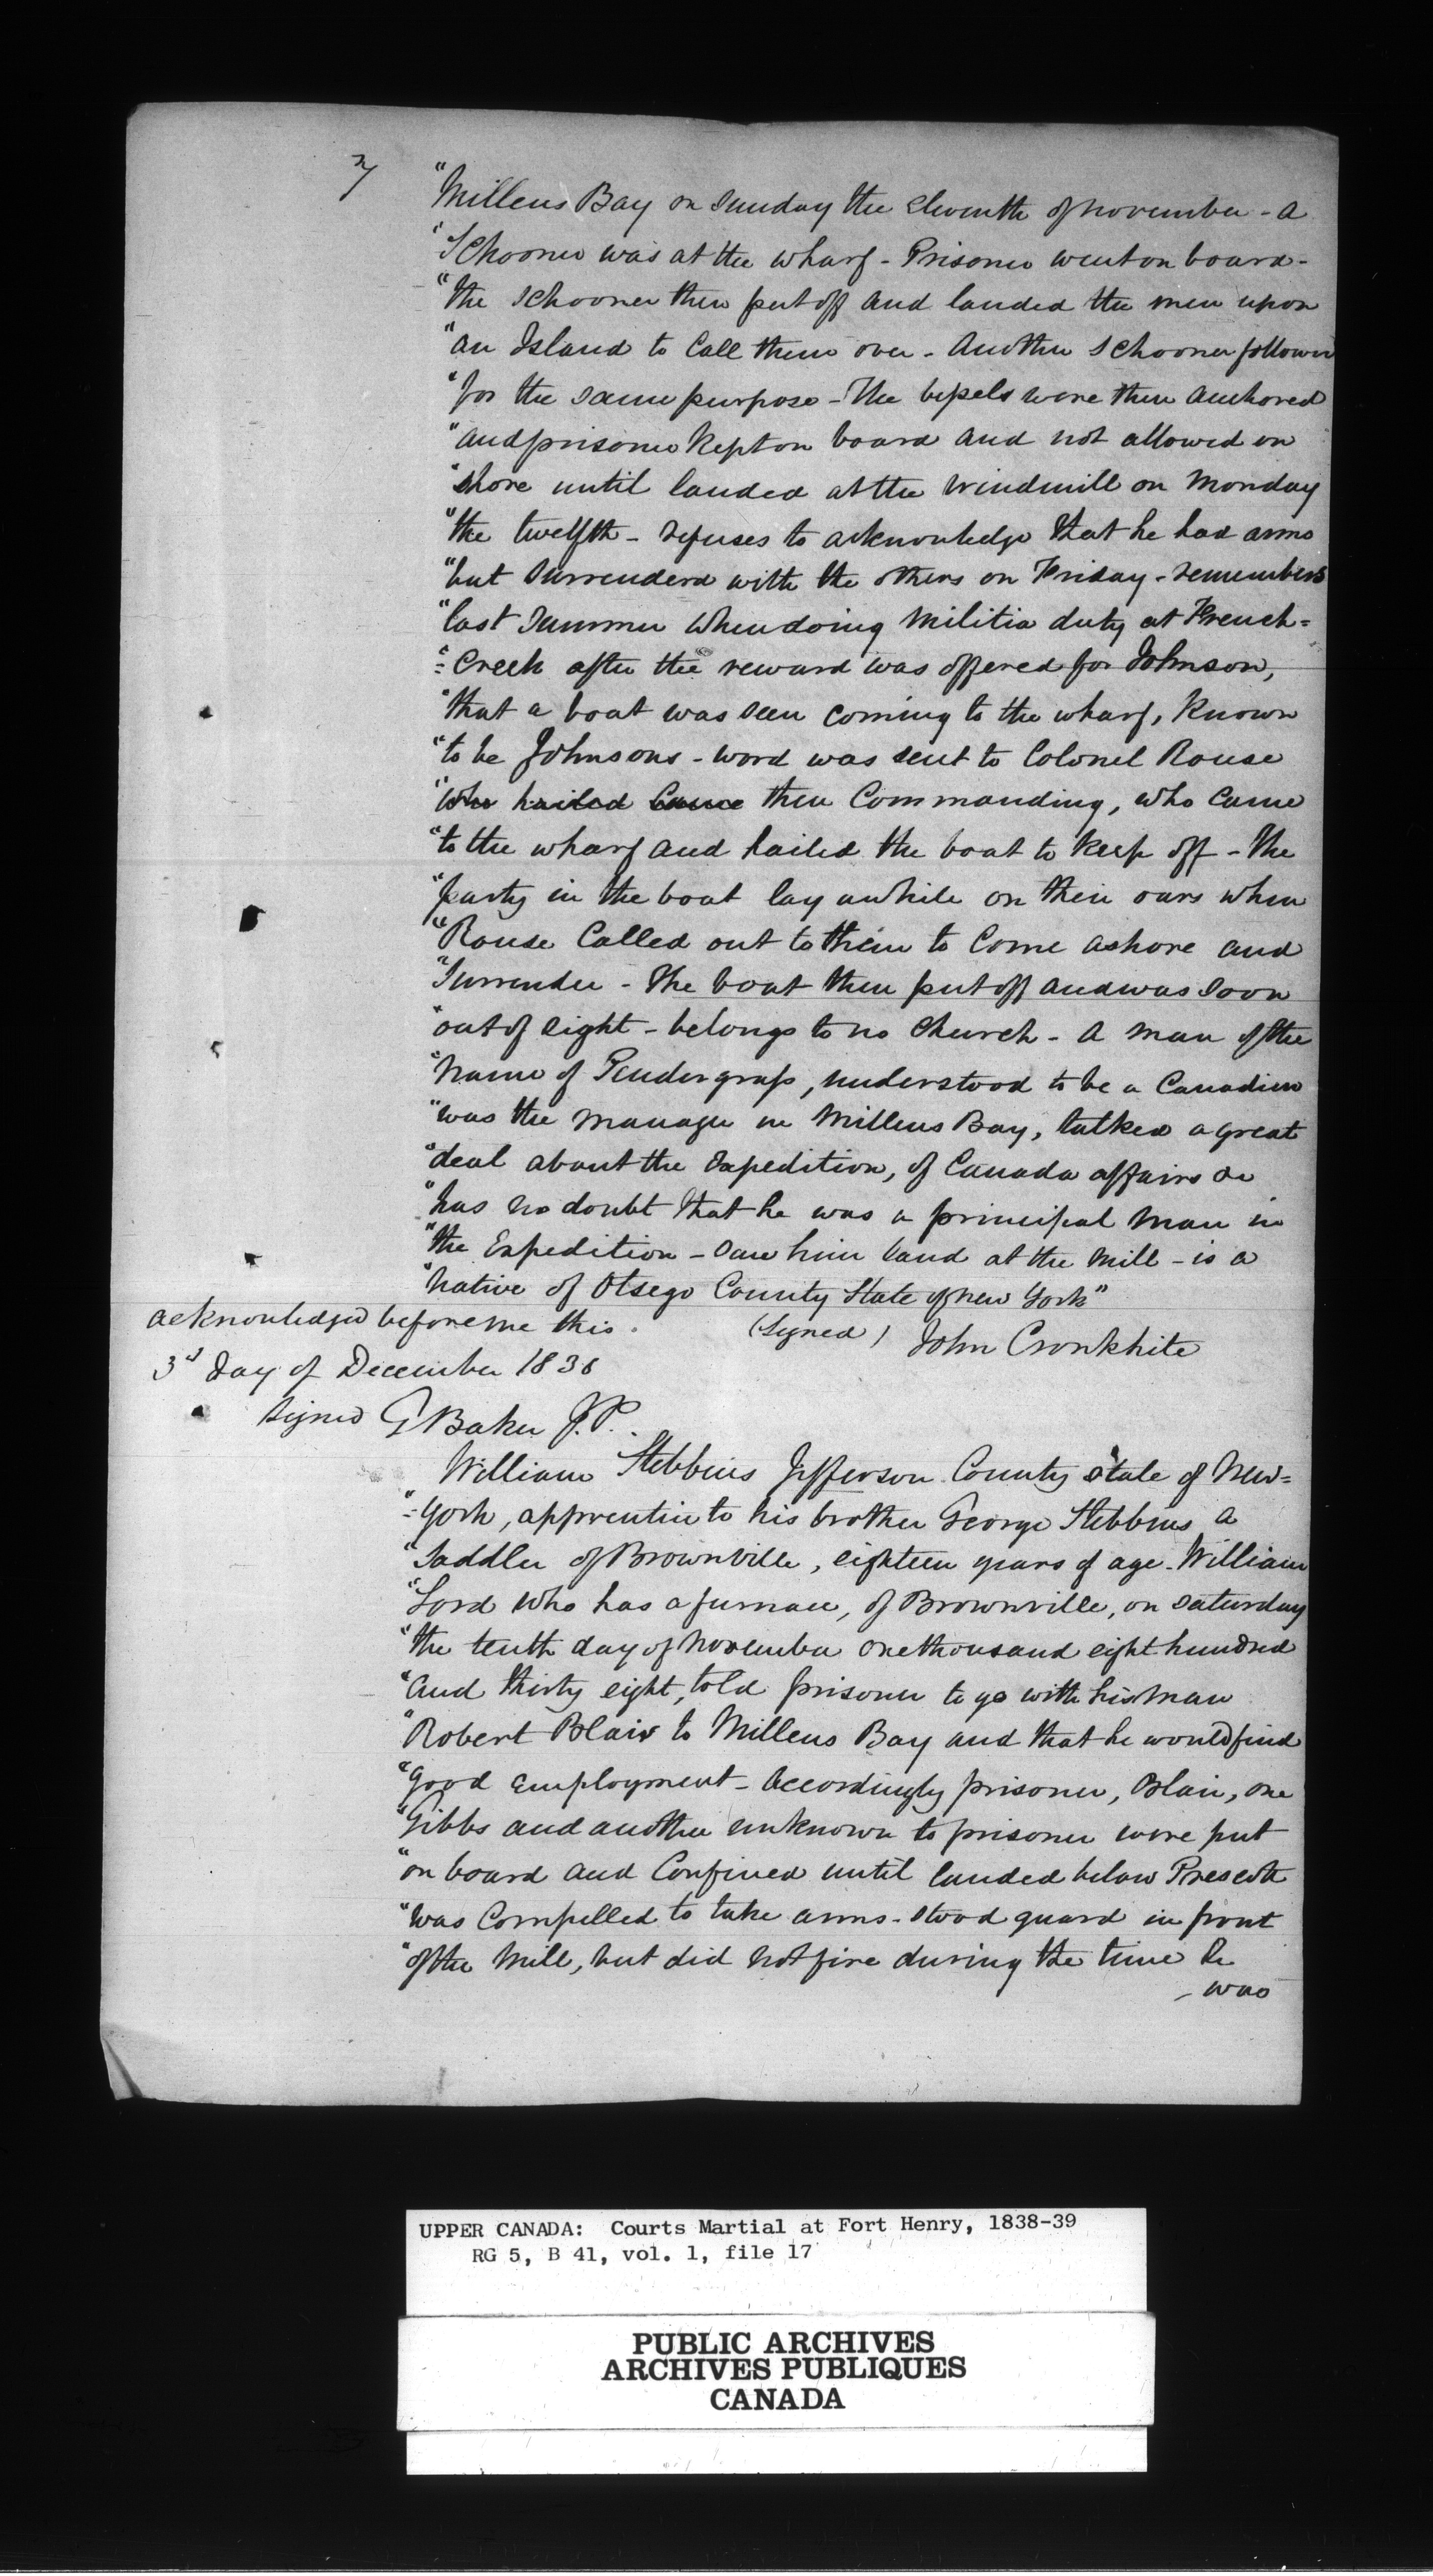 7
"Millens Bay on Sunday the eleventh of November - A
"Schooner was at the wharf - Prisoner went on board -
"the schooner then put off and landed the men upon
"an Island to Call them over - Another Schooner follows
"for the same purpose - The vessels were then anchored
"and prisoner kept on board and not allowed on
"shore until landed at the windmill on Monday
"the twelfth - refuses to acknowledge that he had arms
"but surrenderd with the others on Friday - remembers
"last Summer when doing Militia duty at French=
"=Creek after the reward was offered for Johnson,
"that a boat was seen coming to the wharf, Known
"to be Johnsons - word was sent to Colonel Rouse
"who hailed came then Commanding, who came
"to the wharf and hailed the boat to keep off - The
"party in the boat lay awhile on their oars when
"Rouse Called out to them to Come ashore and
"Surrender - The boat then put off and was soon
"out of sight - belongs to no church - A man of the
"name of Pendergrass, understood to be a Canadian
"was the manager in Millens Bay, talked a great
"deal about the Expedition, of Canada affairs &c
"has no doubt that he was a principal man in
"the Expedition - saw him land at the mill - is a
"native of Otsego County State of New York"
acknowledged before me this
(Signed) John Cronkhite
3d day of December 1838
signed G Baker J.P.
William Stebbins Jefferson County State of New=
"=York, apprentice to his brother George Stebbins a
"Saddler of Brownville, eighteen years of age - William
"Lord who has a furnace, of Brownville, on Saturday
"the tenth day of November one thousand eight hundred
"and thirty eight, told prisoner to go with his man
"Robert Blair to Millens Bay and that he would find
"good employment - Accordingly prisoner, Blair, one
"Gibbs and another unknown to prisoner were put
"on board and Confined until landed below Prescott
"was Compelled to take arms - stood guard in front
"of the Mill, but did not fire during the time he
- was
UPPER CANADA: Courts Martial at Fort Henry, 1838-39
RG 5, B 41, vol. 1, file 17
PUBLIC ARCHIVES
ARCHIVES PUBLIQUES
CANADA